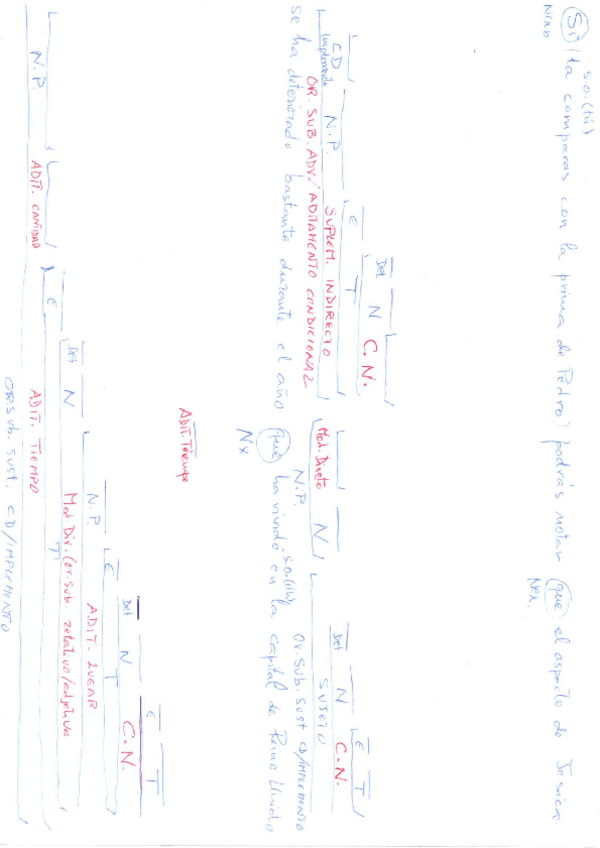 s.o. (tú)
Si / la comparas con la prima de Pedro) podrás notar que el aspecto de Jesica
Nexo
Nex.
Det
E
T
N
C.N.
CD
Implemento
N.P.
SUPLEM. INDIRECTO
OR. SUB. ADV./ADITAMENTO CONDICIONAL
Mod. Directo
N.P.
N
Det
N
E
T
C.N.
SUJETO
or. sub. sust CD/IMPLEMENTO
se ha deteriorado bastante durante el año que ha vivido en la capital de Reino Unido
Nx
ADIT. Tiempo
N.P.
ADIT. CANTIDAD
E
Det
N
T
N.P.
E
Det
N
E
T
C.N.
T
ADIT. LUGAR
Mod Dir. (or. sub relativo/adjetiva
ADIT. TIEMPO
OR. sub. sust. CD/IMPLEMENTO